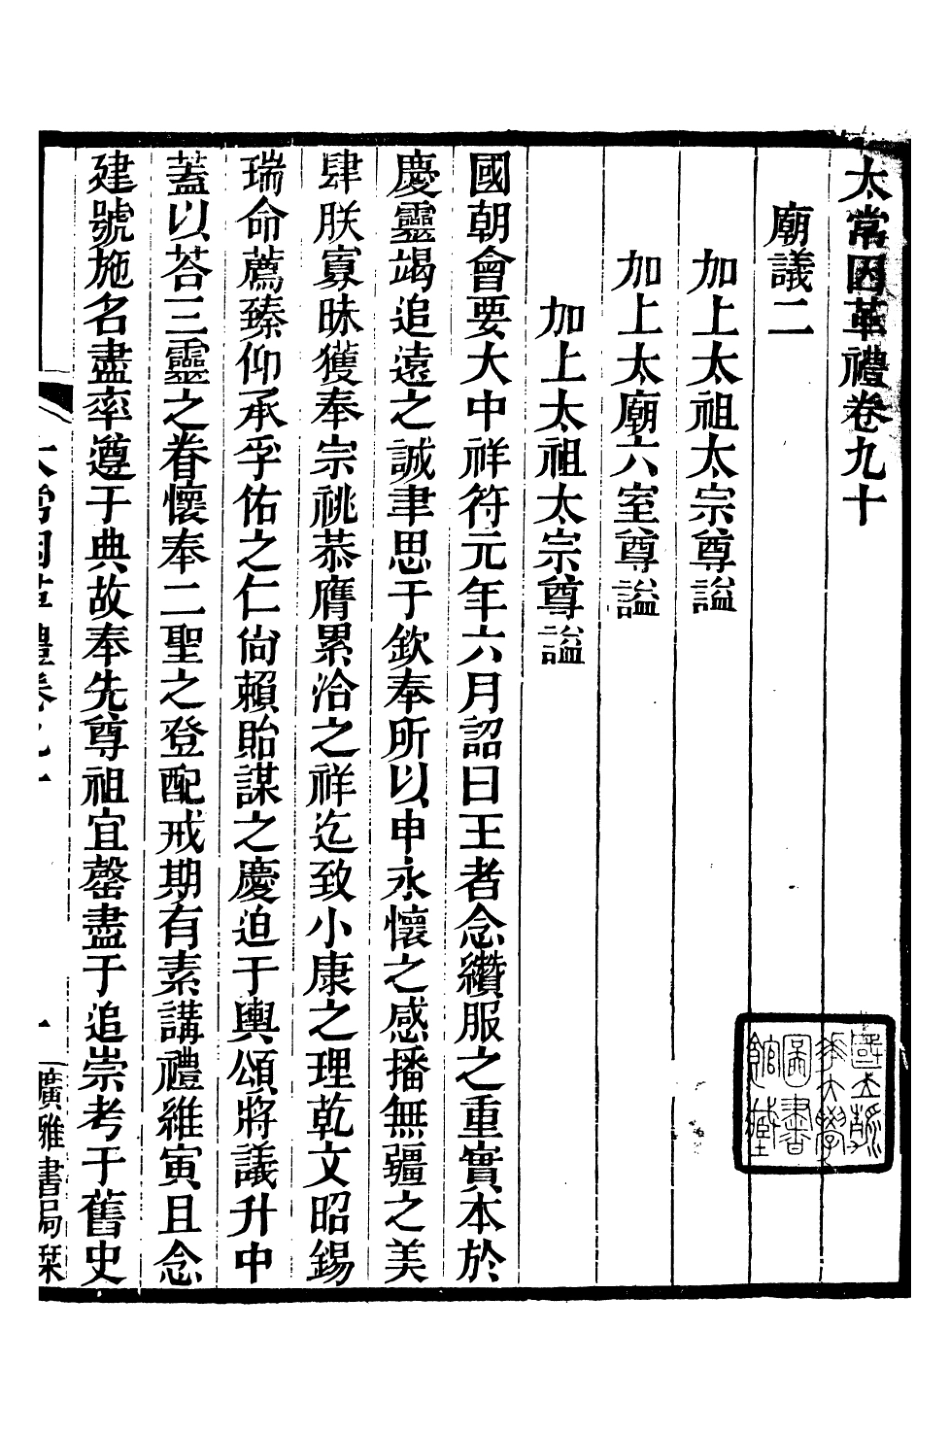 太常因革禮卷九十
廟議二
加上太祖太宗尊謚
加上太廟六室尊謚
加上太祖太宗尊謚
國朝會要大中祥符元年六月詔曰王者念纘服之重實本於
慶靈竭追遠之誠聿思于欽奉所以申永懷之感播無疆之美
肆朕寡昧獲奉宗祧恭膺累洽之祥迄致小康之理乾文昭錫
瑞命薦臻仰承孚佑之仁尙賴貽謀之慶迫于輿頌將議升中
蓋以荅三靈之眷懷奉二聖之登配戒期有素講禮維寅且念
建號施名盡率遵于典故奉先尊祖宜罄盡于追崇考于舊史
太常因革禮卷九十
一
廣雅書局栞
國立清華大學圖書館藏